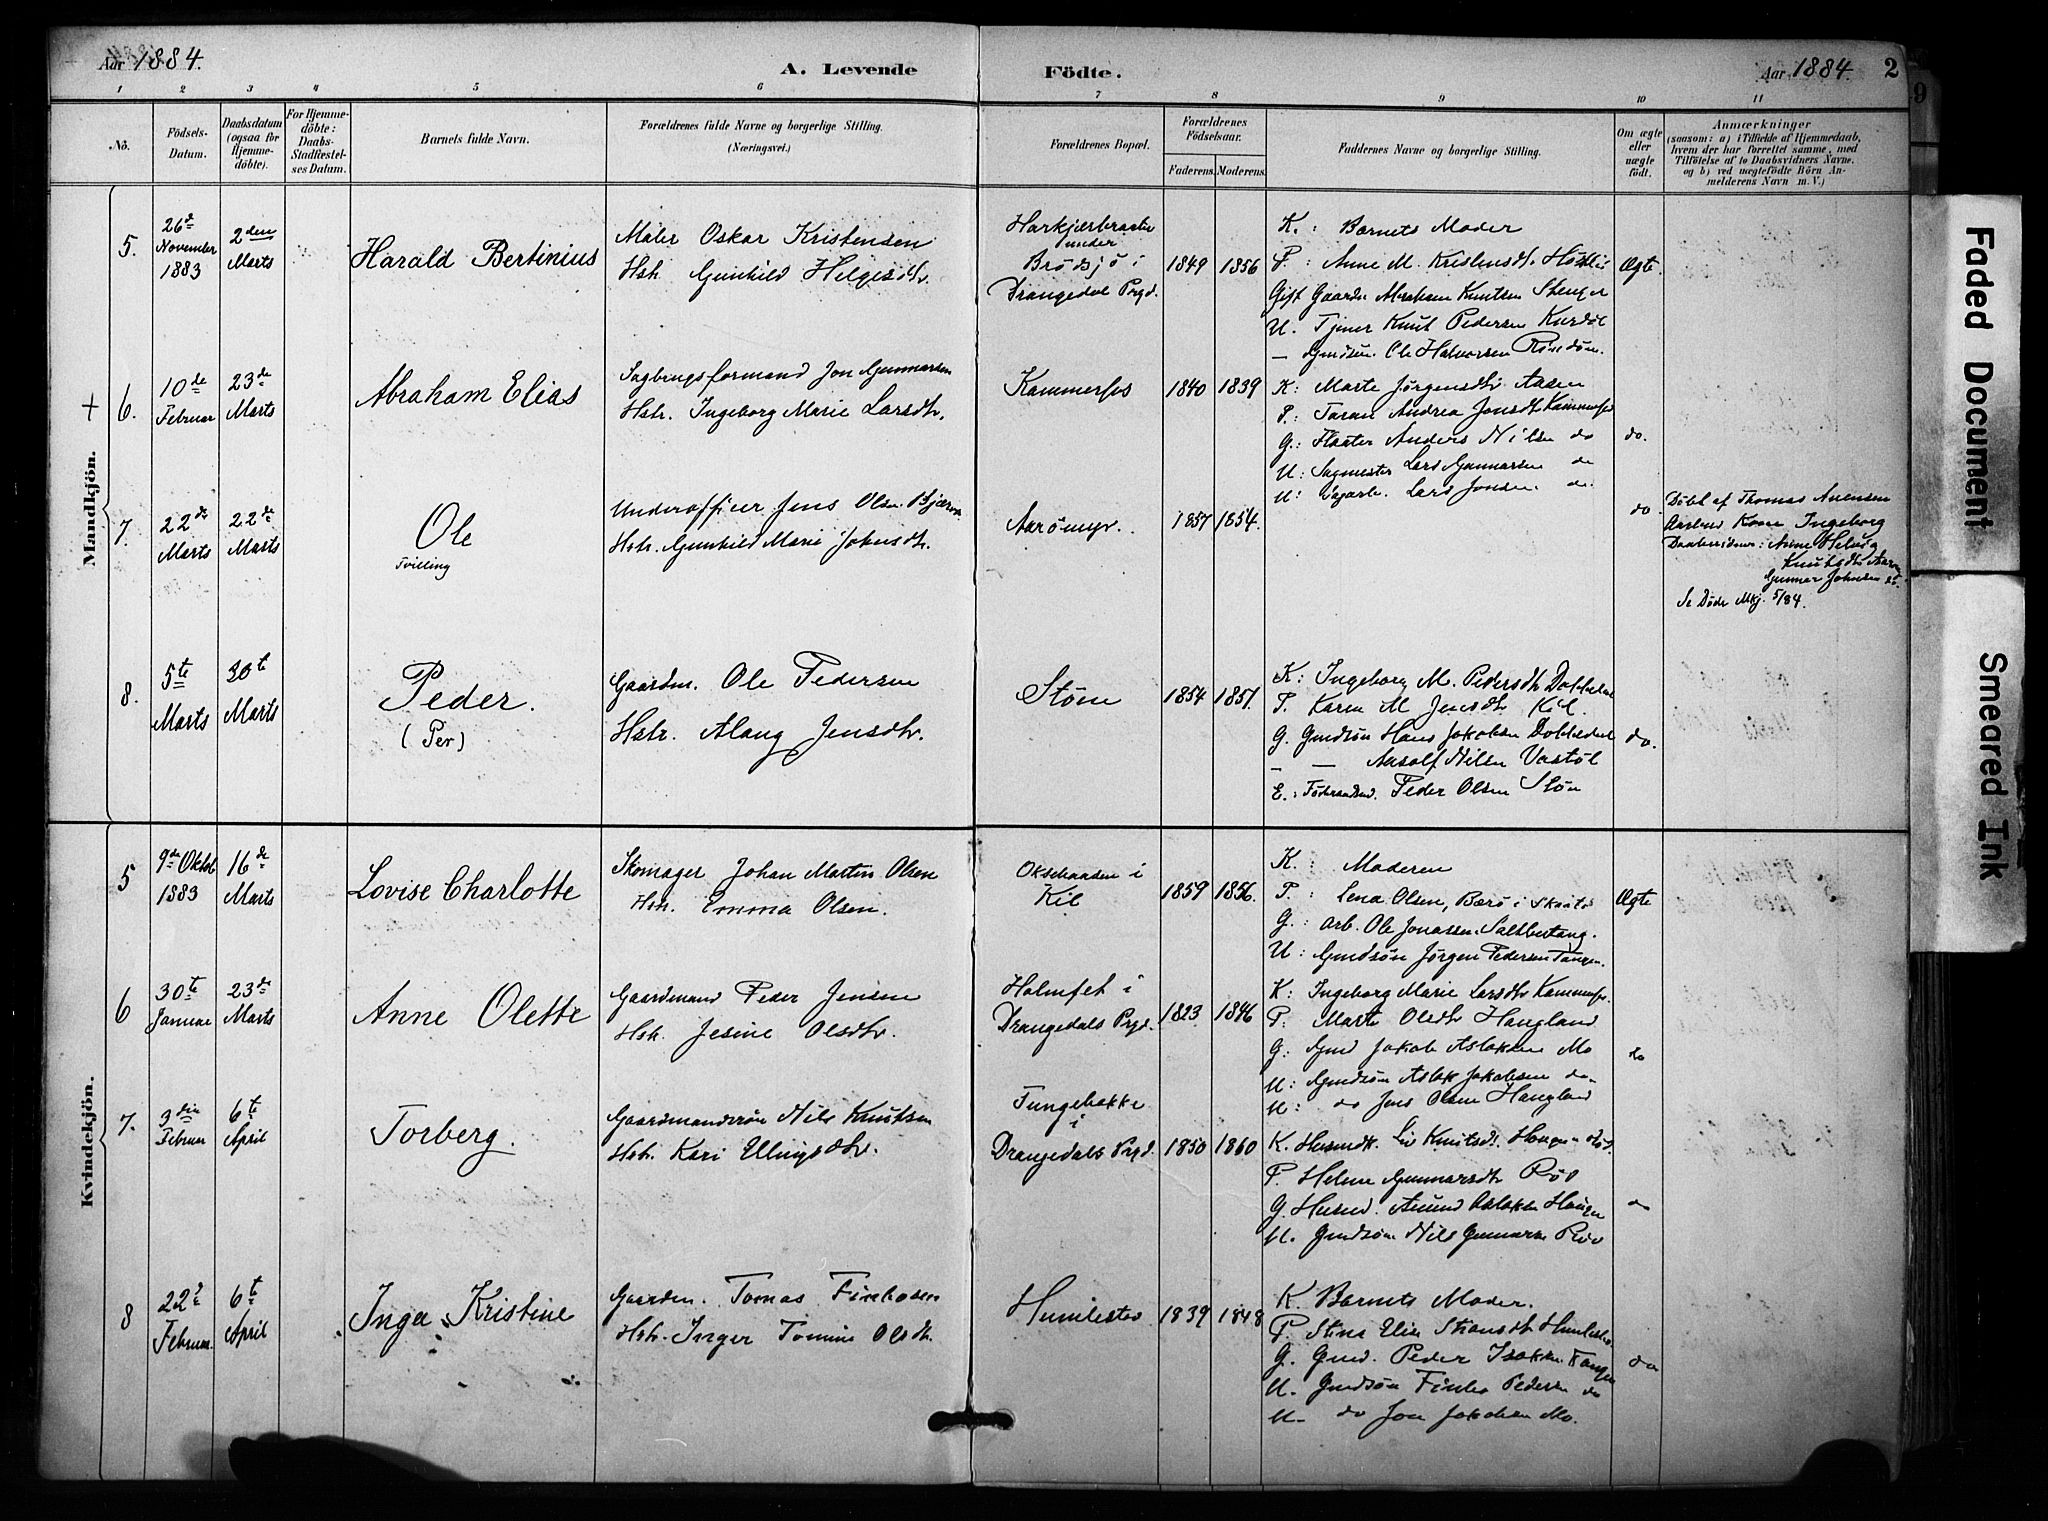 Aar 1884. A. Levende Födte. Aar 1884. 2
1 2 3 4 5 6 7 8 9 10 11
No. Födsels-Datum. Daabsdatum (ogsaa for Hjemmedöbte). For Hjemmedöbte: Daabs-Stadfæstelses Datum. Barnets fulde Navn. Forældrenes fulde Navne og borgerlige Stilling. (Næringsvei.) Forældrenes Bopæl. Forældrenes Födselsaar. Faderens. Moderens. Faddernes Navne og borgerlige Stilling. Om ægte eller uægte födt. Anmærkninger (saasom: a) i Tilfælde af Hjemmedaab, hvem der har forrettet samme, med Tilföielse af to Daabsvidners Navne. og b) ved uægtefödte Börn Anmelderens Navn m. V.)
Mandkjön.
5. 26de November 1883 2den Marts Harald Bertinius
Maler Oskar Kristensen
Hstr. Gunhild Helgesdtr.
under Brødsjø i Drangedal Prgd. 1849 1856
K.: Barnets Moder
P: Anne M. Kristensdt.
Gift Gaardm. Abraham Knutsen
U. Tjener Knut Pedersen
Gmdsøn. Ole Halvorsen
Ægte.
+ 6. 10de Februar 23de Marts Abraham Elias
Sagbrugsformand Jon Gunnarsen
Hstr. Ingeborg Marie Larsdtr.
Kammerfos 1840 1839
K: Marte Jørgensdtr Aasen
P.: Taran Andrea Jonsdtr Kammerfos
G.: Anders Nilsen do
U: Sagmester Lars Gunnarsen do
U: Sagarb. Lars Jonsen do
do.
7. 22de Marts 22de Marts Ole
Tvilling
Underofficer Jens Olsen
Hstr. Gunhild Marie Johnsdtr.
Aarømyr. 1857 1854.
do.
Døbt af Thomas
Kone Ingeborg
Daabsvidner: Anne
Knutsdtr
Gunnar Johnsen
Se Døde Mkj. 5/84.
8. 5te Marts 30te Marts Peder.
(Per)
Gaardm. Ole Pedersen
Hstr. Alang Jensdtr.
Støen 1854 1851.
K: Ingeborg M. Pedersdtr
P. Karen M. Jensdtr Kil.
G. Gmdsøn Hans Jakobsen
— — Aasolf Nilsen Vastøl
E.: Peder Olsen Støen
do.
Kvindekjön.
5 9de Oktob 1883 16de Marts Lovise Charlotte
Skomager Johan Martin Olsen
Hstr. Emma Olsen.
i Kil 1859 1856.
K: Moderen
P: Lena Olsen, Barø i
G.: Arb. Ole Jonassen
U: Gmdsøn Jørgen Pedersen Tangen.
Ægte
6 30te Januar 23de Marts Anne Olette
Gaardmand Peder Jensen
Hstr. Jesine Olsdtr.
Holmfet i Drangedals Prgd. 1823 1846
K: Ingeborg Marie Larsdtr Kammerfos.
P: Marte Olsdtr Haugland
G: Gmd Jakob Aslaksen Mo
U: Gmdsøn Aslak Jakobsen do
U: do Jens Olsen Haugland
do
7. 3die Februar 6te April Torberg.
Gaardmandssøn Nils Knutsen
Hstr. Kari Ellingsdtr.
Tungebakke i Drangedals Prgd. 1850 1860
K. Liv Knutsdt.
P. Helene Gunnarsdtr
G. Husmd. Amund Aslaksen Haugen
U. Gmdsøn Nils Gunnarsen
do
8 22de Februar. 6te April Inga Kristine
Gaardm. Tomas
Hstr. Inger Tomine Olsdtr.
Humlestø 1839 1848
K. Barnets Moder.
P. Stina Elise Humlestø.
G. Gmd. Peder Isaksen Tangen
U. Gmdsøn Pedersen do
U. do Jon Jakobsen Mo.
do
9
Faded Document
Smeared Ink